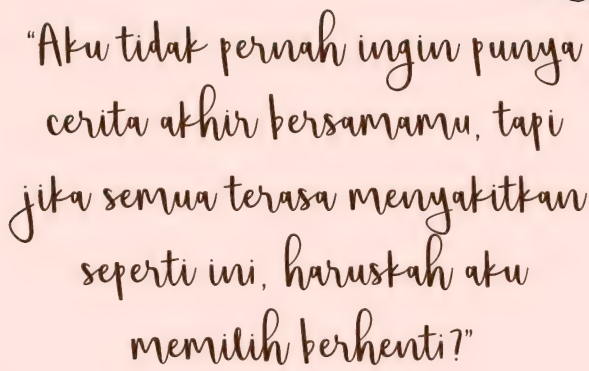 “Aku tidak pernah ingin punya
cerita akhir bersamamu, tapi
jika semua terasa menyakitkan
seperti ini, haruskah aku
memilih berhenti?”